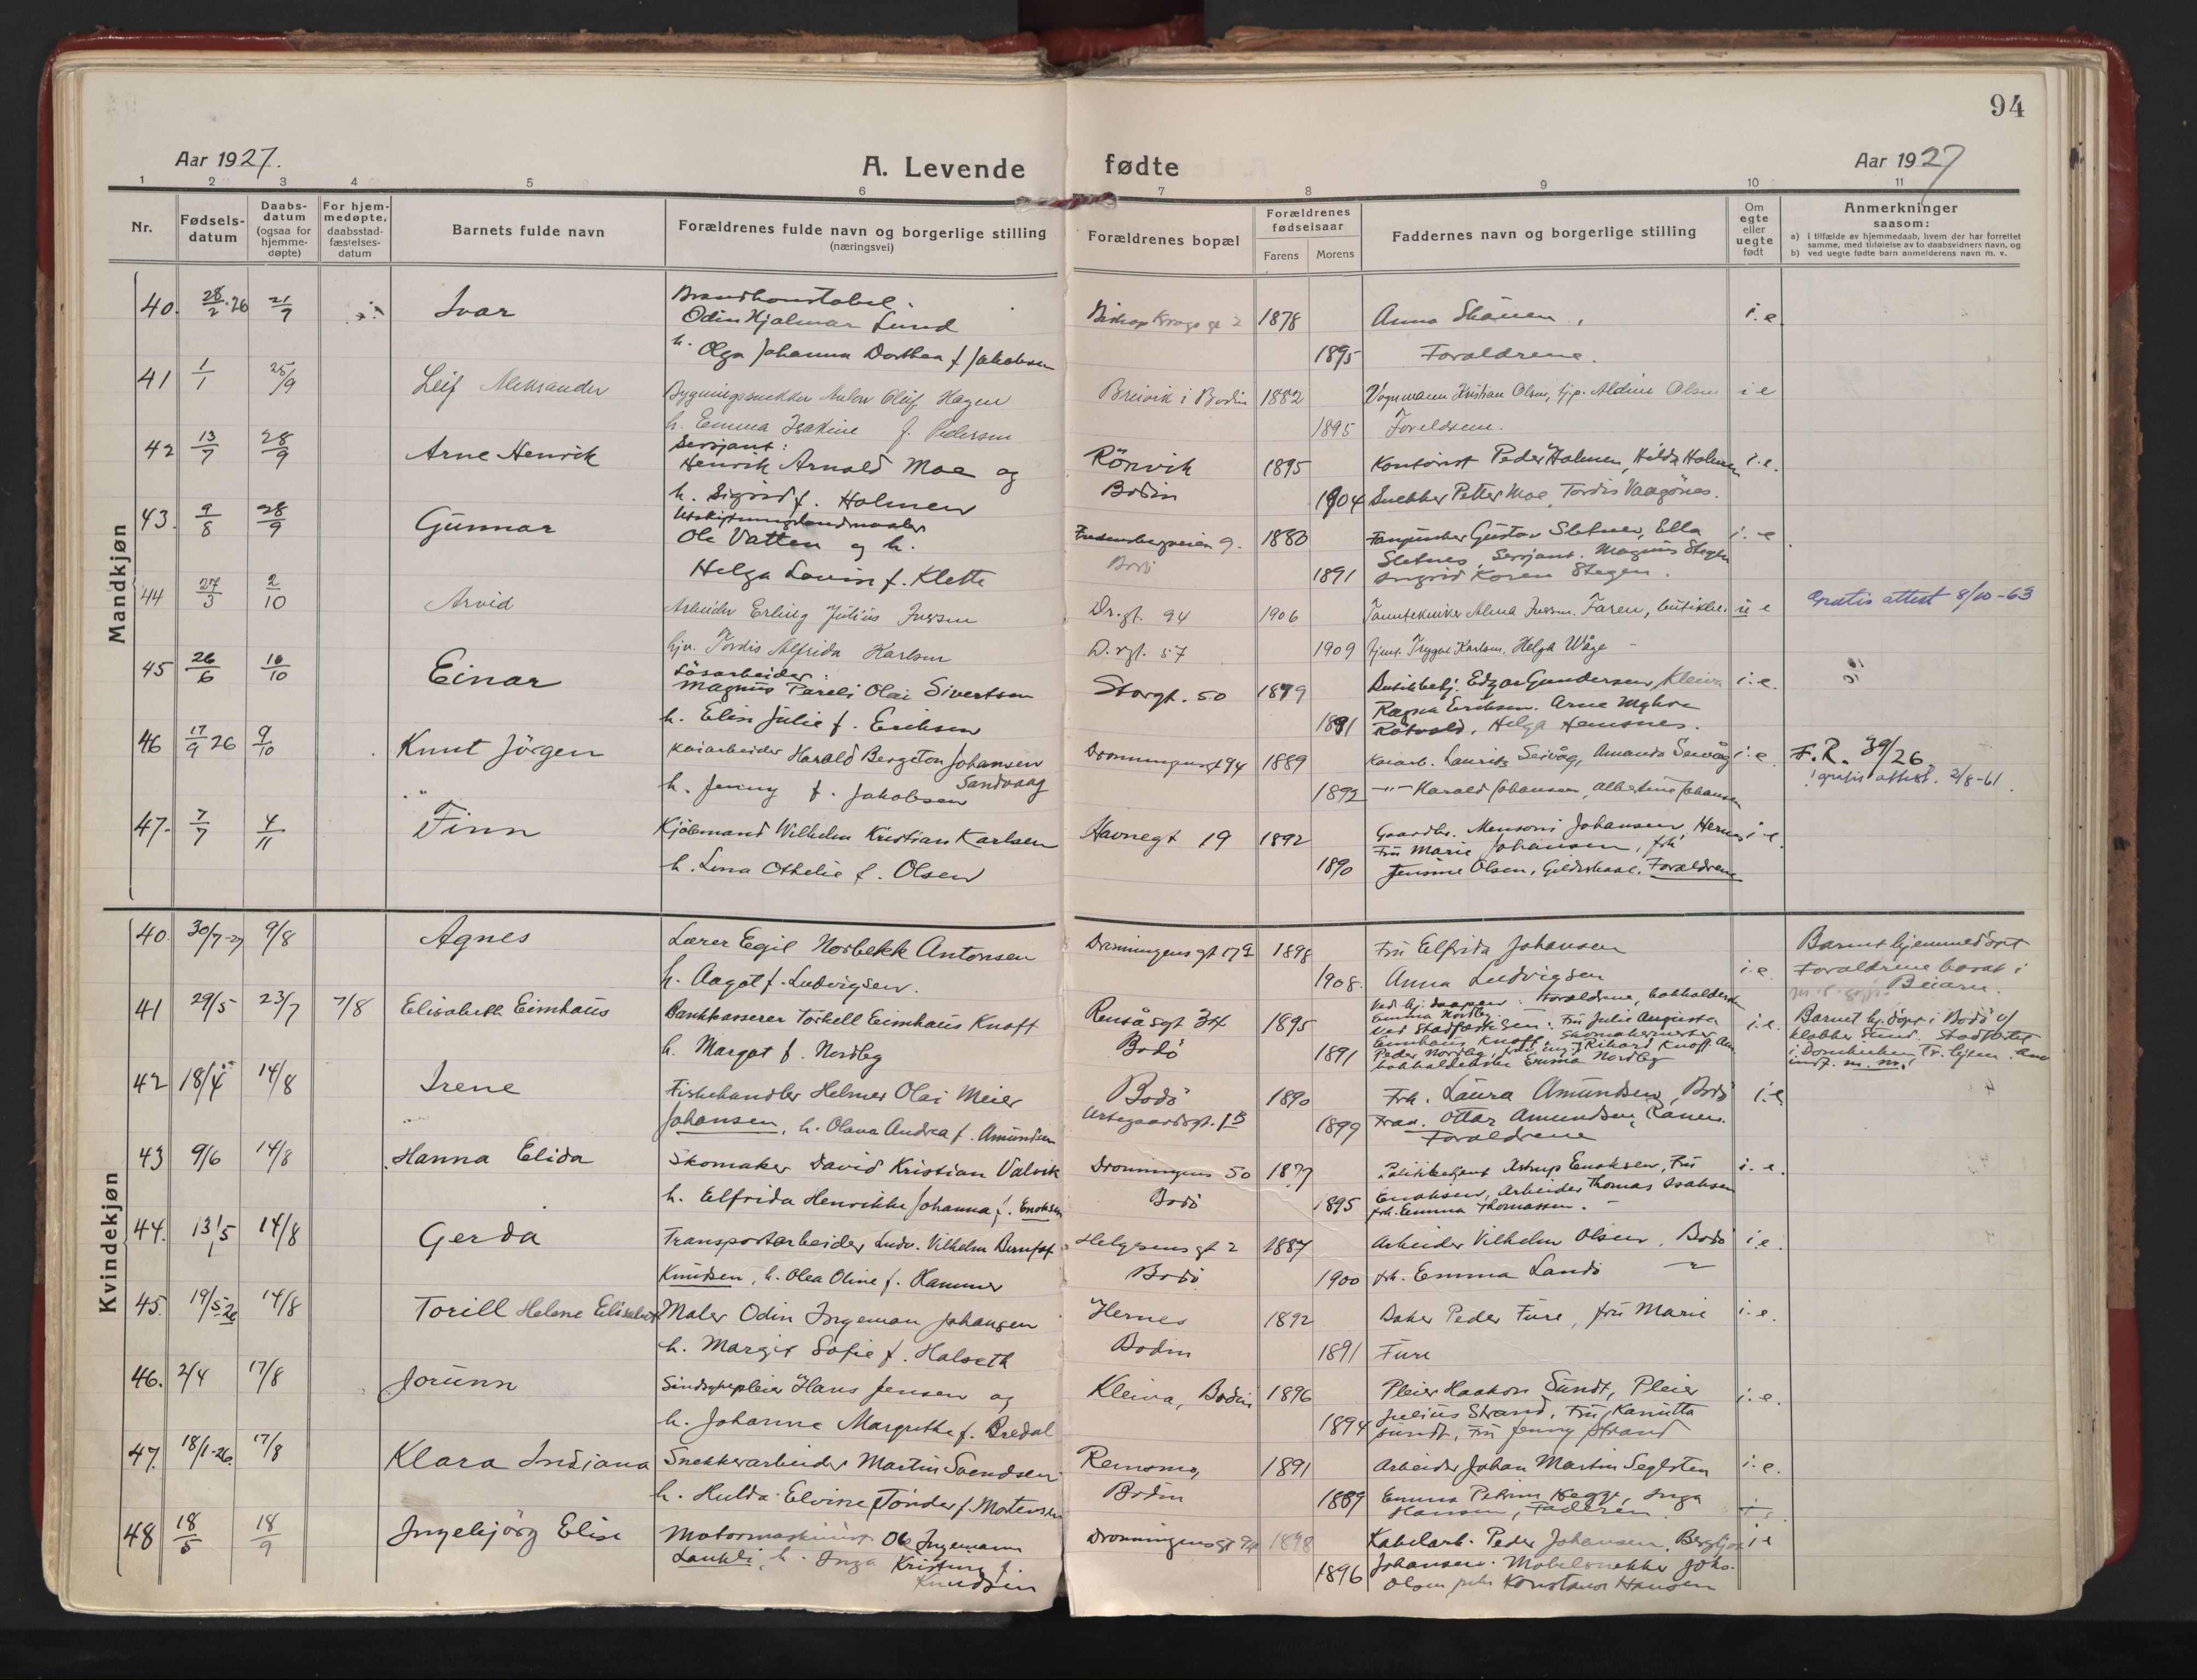 94
Aar 1927.
A. Levende fødte
Aar 1927
1 2 3 4 5 6 7 8 9 10 11
Nr.
Fødsels-
datum
Daabs-
datum
(ogsaa for
hjemme-
døpte)
For hjem-
medøpte,
daabsstad-
fæstelses-
datum
Barnets fulde navn
Forældrenes fulde navn og borgerlige stilling
(næringsvei)
Forældrenes bopæl
Forældrenes
fødselsaar
Farens Morens
Faddernes navn og borgerlige stilling
Om
egte
eller
uegte
født
Anmerkninger
saasom:
a) i tilfælde av hjemmedaab, hvem der har forrettet
samme, med tilføielse av to daabsvidners navn, og
b) ved uegte fødte barn anmelderens navn m. v.
Mandkjøn
40. 28/2-26 21/7 Ivar
Brandkonstabel
Odin Hjalmar Lund
h. Olga Johanna Dorthea f. Jakobsen
1878
1895
Anna
Foraldrene.
i.e.
41 1/1 25/9 Leif Aleksander
Hagen
h. Emma Isakine f. Pedersen
Breivik i Bodin
1882
1895
Vognmann Kristian Olsen, Aldine Olsen
Foreldrene.
i e
42 13/7 28/9 Arne Henrik
Sersjant:
Henrik Arnold Moe og
h. Sigrid f. Holmen
Rönvik
Bodin
1895
1904
Kontorist Peder Holmen, Hilda Holmen
Snekker Petter Moe, Tordis Vaagönes.
i.e.
43. 9/8 28/9 Gunnar
Utskiftningslandmaaler
Ole Vatten og h.
Helga Lovise f. Klette
9.
Bodö
1880
1891
Gustav Sletnes, Ella
Sletnes, Sersjant. Magnus Stegen
Ingrid Koren Stegen.
i. e
44 27/3 2/10 Arvid
Arbeider Erling Julius Iversen
Tordis Alfrida Karlsen
Dr.gt. 94
D.rgt. 57
1906
1909
Tanntekniker Alma Iversen.
Trygve Karlsen, Helga Wåge
u e
Gratis attest 8/10-63
45 26/6 16/10 Einar
Lösarbeider:
Magnus Pareli Olai Sivertsen
h. Elise Julie f. Eriksen
Storgt. 50
1879
1881
Butikkbetj. Edgar Gundersen, Kleiva
Ragna Eriksen. Arne
Rötvold, Helga Hemsnes.
i.e.
46 17/9 26 9/10 Knut Jörgen
Kaiarbeider Harald Bergeton Johansen
Sandvaag
h. Jenny f. Jakobsen
Dronningensgt 94
1889
1892
Kaiarb. Laurits Seivåg, Amanda Seivåg
-"- Harald Johansen, Albertine Johansen
i. e.
F.R. 39/26.
gratis attest. 2/8-61.
47. 7/7 4/11 Finn
Kjölemand Wilhelm Kristian Karlsen
h. Lina Othelie f. Olsen
Havnegt 19
1892
1890
Gaardbr. Mensoni Johansen, Hernes
Fru Marie Johansen, frk
Jensine Olsen, Gildeskaal. Foraldrene
i. e.
Kvindekjøn
40. 30/7-27 9/8 Agnes
Lærer Egil Norbekk Antonsen
h. Aagot f. Ludvigsen.
Dronningens gt
1898
1908.
Fru Elfrida Johansen
Anna Ludvigsen
i.e.
Barnet hjemmedöpt
Foraldrene bosat i
Beiarn.
41 29/5 23/7 7/8 Elisabeth Eimhaus
Bankkasserer Torkell Eimhaus Knoff
h. Margot f. Nordby
Rensåsgt 34
Bodö
1895
1891
Ved hj. daapen: Foraldrene, bokholderske
Emma Nordby.
Ved Stadfæstelsen: Fru Julie Augusta
Eimhaus Knoff, Skomakermester
Peder Nordby, Rikard Knoff
bokholderske Emma Nordby
i.e.
Barnet hj. döpt i Bodö
42 18/4 14/8 Irene
Fiskehandler Helmer Olai Meier
Johansen, h. Olava Andrea f. Amundsen
Bodö
1890
1899
Frk. Laura Amundsen, Bodö
Ottar Amundsen, Ranen.
Foraldrene
i.e.
43 9/6 14/8 Hanna Elida
Skomaker David Kristian Valvik
h. Elfrida Henrikke Johanna f. Enoksen
Dronningens 50
Bodö
1877
1895
Politibetjent Astrup Enoksen, Fru
Enoksen, Arbeider Thomas Isaksen
frk. Emma Thomassen.
i. e.
44. 13/5 14/8 Gerda
Transportarbeider Ludv. Vilhelm
Knudsen, h. Olea Oline f. Hammer
Helgesens gt 2
Bodö
1887
1900
Arbeider Vilhelm Olsen, Bodö
frk. Emma Landö -"-
i.e.
45. 19/5-26 14/8 Torill Helene Elisabeth
Maler Odin Ingeman Johansen
h. Margit Sofie f. Halseth
Hernes
Bodin
1892
1891
Baker Peder Fure, fru Marie
Fure
i.e.
46. 2/4 17/8 Jorunn
Sindsykepleier Hans Jensen og
h. Johanne Margrethe f. Bredal
Kleiva, Bodin
1896
1894
Pleier Haakon Sundt, Pleier
Julius Strand, Fru Kanutta
Sundt, Fru Jenny Strand
i.e.
47. 18/1-26. 17/8 Klara Indiana
Snekkerarbeider Martin Svendsen
h. Hulda Elvine Tönder f. Mortensen
Remsmo,
Bodin
1891
1889
Arbeider Johan Martin Seglsten
Emma Petrine Hegge, Inga
Hansen, Faderen.
i.e.
48 18/5 18/9 Ingebjörg Elise
Motormaskinist Ole Ingemann
Laukli, h. Inga Kristine f.
Knudsen
Dronningensgt
1898
1896
Kabelarb. Peder Johansen, Bergljot
Johansen. Møbelsnekker Johs.
Olsen Konstanse Hansen
i e